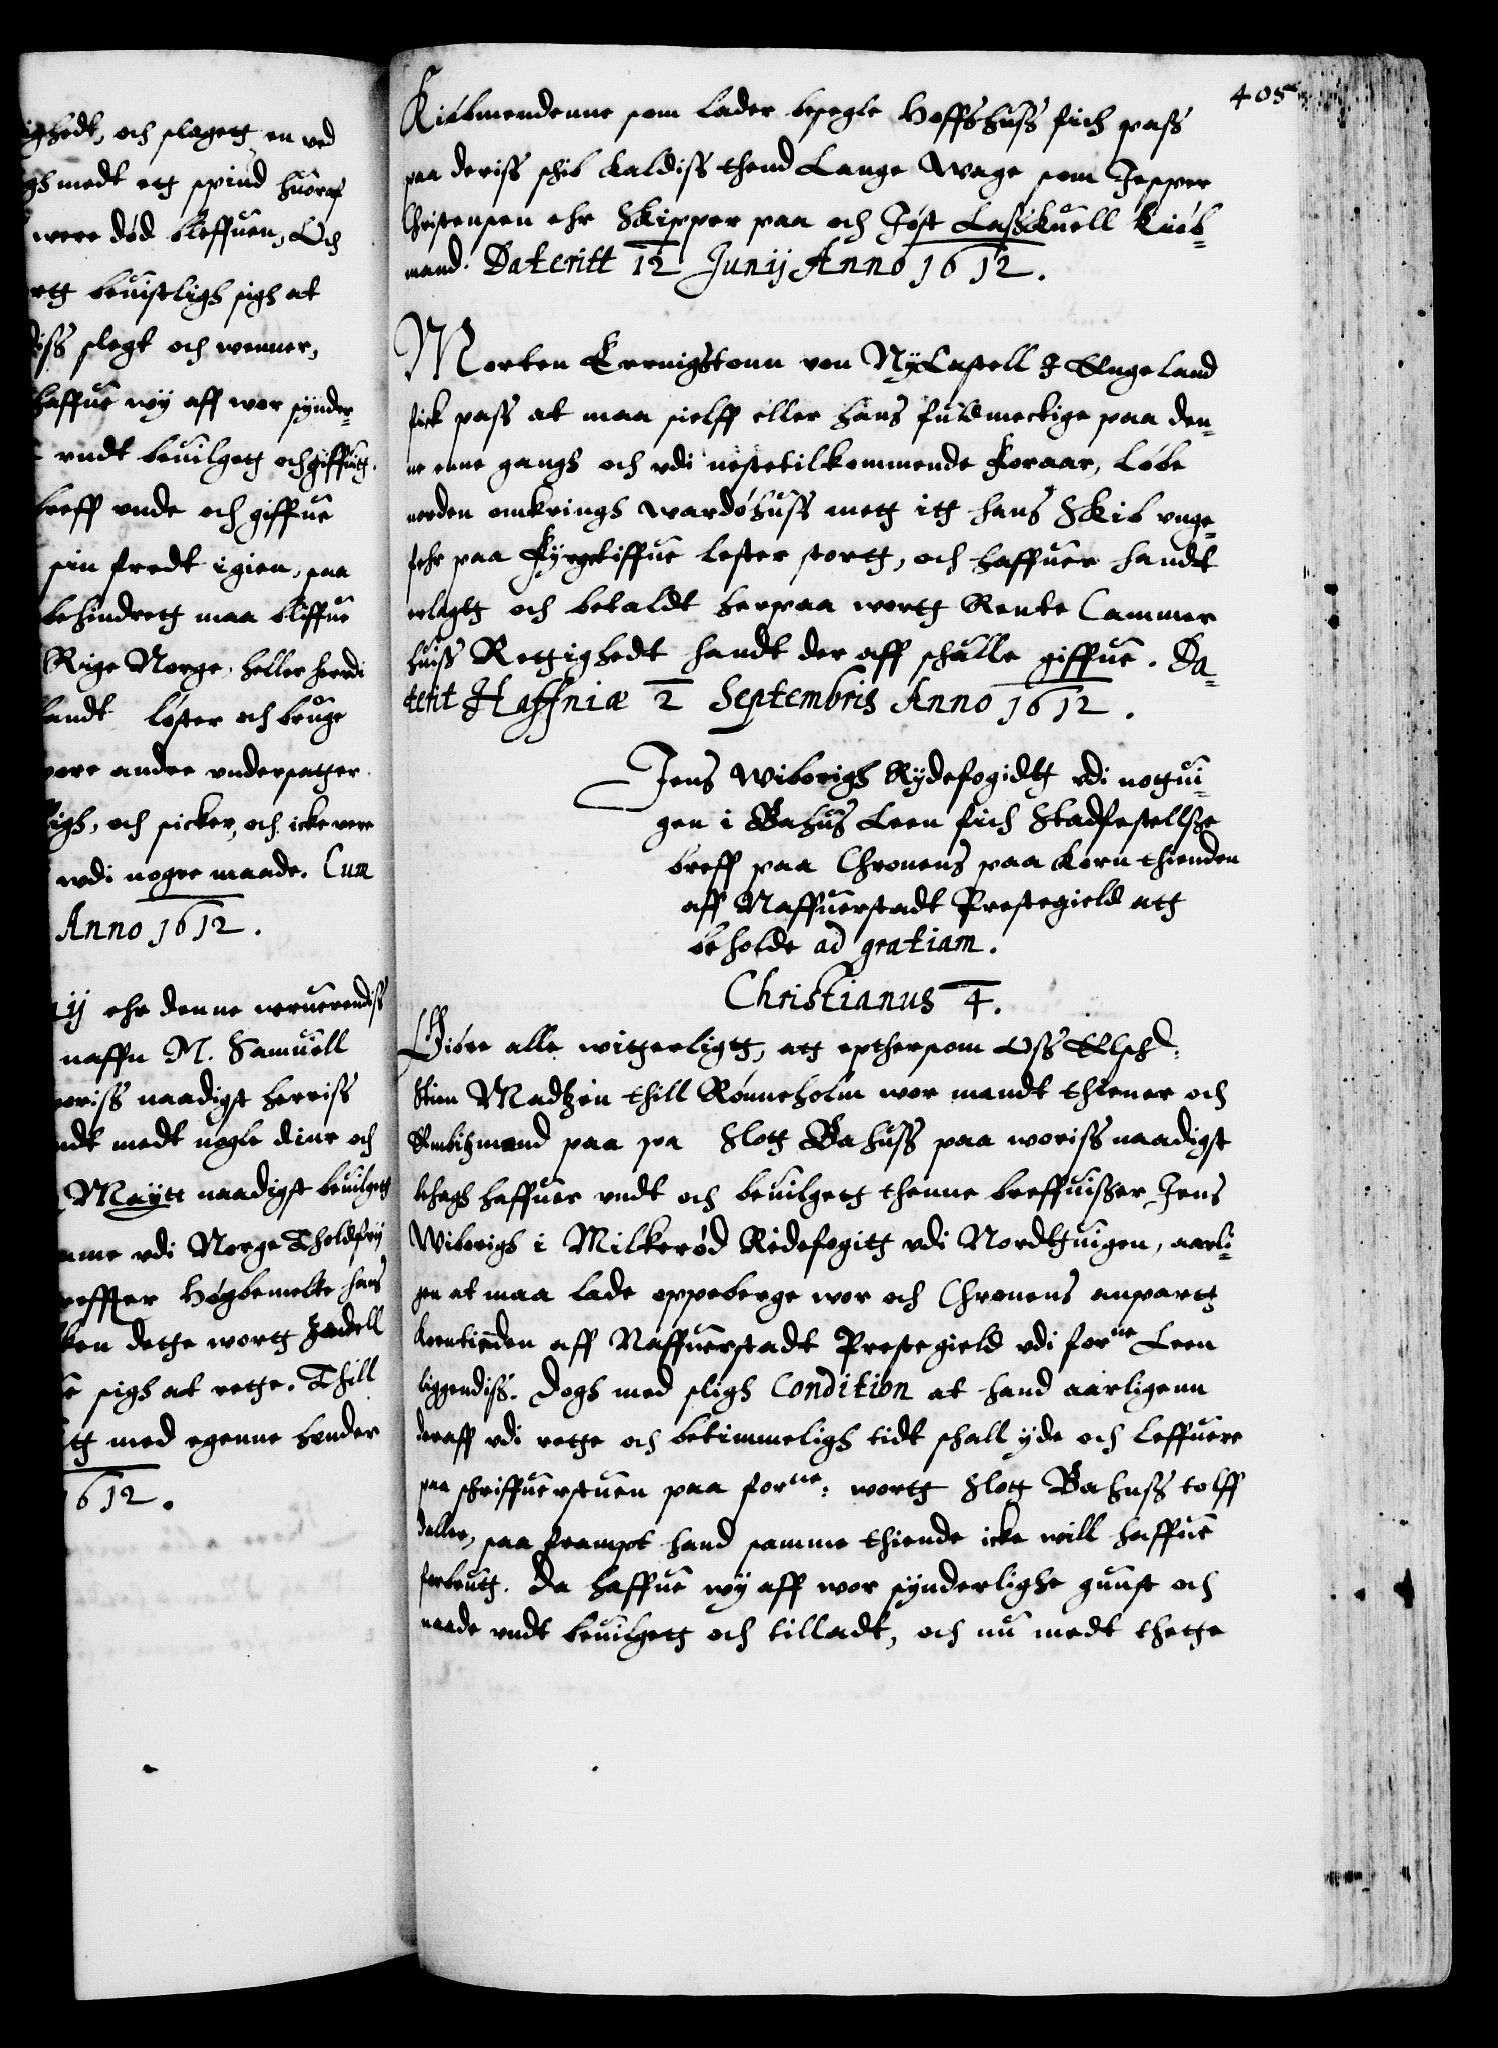 ighedt, och slagetz en ved
gh medt etz spind huoraf
were død bleffuen, Och
rtz beuistligh sigh at
diss slegt och wenner,
haffue wij aff wor synder¬
undt beuilgetz och giffuitz.
breff unde och giffue
sin fredt igien, saa
behindretz maa bliffue
Rige Norge, heller herdi
landt løster och bruge
wore andre undersatzer.
ligh, och sicker, och icke vere
wdi nogre maade. Cum
Anno 1612.
ij ehr denne werwerendiss
naffn M. Samuell
woriss naadigst herriss
ndt medt nogle diur och
Maÿtt naadigst beuilgetz
mme udi Norge Tholdfrij
effter høgbemelte hans
ken dette wortz Zedell
e sigh at rette. Thill
tz med egenne hender
1612.
405
Kiøbmendenne som lader besegle Hoffshuss fich pass
paa deriss schib kaldiss thend Lange Wage som Jesper
Christensen ehr Skipper paa och Jøst Lassickuell kiøb¬
mand. Dateritt 12 Junij Anno 1612.
Morten Errnigstonn von NyCastell I Engeland
fick pass at maa sielff eller hans fuldmectige paa den¬
ne enne gangh och udi nestetilkommende Foraar, løbe
norden omkringh wardøhuss metz itz hans Skib unge¬
fehr paa Fyrgetiffue lester stortz, och haffuer handt
erlagtz och betaldt herpaa wortz Rente Cammer
huiss Rettighedt handt der aff schulle giffue. Da¬
terit Haffniæ 2 Septembris Anno 1612.
Jens Wiborigh Rydefogidtz udi nogui¬
gen i Bahus Leen fich Stadfestellsze
breff paa Chronens paa Korn thienden
aff Naffuerstadt Prestegield atz
beholde ad gratiam.
Christianus 4.
Giøre alle witzerligtz, atz epthersom Oss Elsch:
Stinn Madtzen thill Rønneholm wor mandt thiener och
Embitzmand paa paa Slotz Bahuss paa woriss naadigst
behagh haffuer undt och beuilgetz thenne breffuiszer Jens
Wiborigh i Milkerød Ridefogitz udi Nordtzuigen, aarli¬
gen at maa lade oppeberge wor och Chronens anpartz
korntienden aff Naffuerstadt Prestegield udi forne Leen
liggendiss. Dogh med sligh Condition at hand aarligenn
deraff udi rette och betimmeligh tidt schall yde och leffuere
paa schriffuerstuen paa forne: wortz Slotz Bahuss tolff
daller, saa frampt hand samme thiende icke will haffue
forbrutz. Da haffue wij aff wor synderlighe gunst och
naade undt beuilgetz och tilladt, och nu medt thette